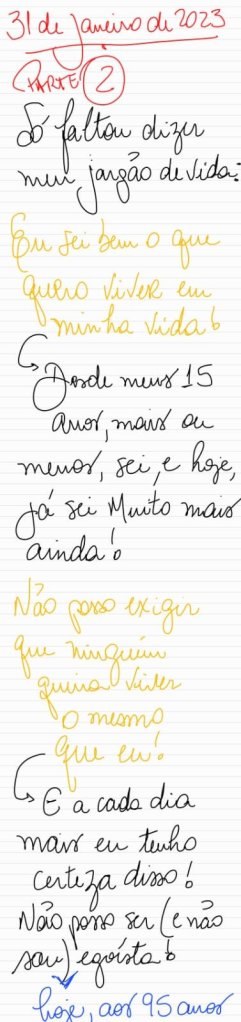 31 de janeiro de 2023
PARTE 2
Só faltou dizer
meu jargão de vida:
Eu sei bem o que
quero viver em
minha vida!
Desde meus 15
anos, mais ou
menos, sei, e hoje,
já sei Muito mais
ainda!
Não posso exigir
que ninguém
queira viver
o mesmo
que eu!
E a cada dia
mais eu tenho
certeza disso!
Não posso ser (e não
sou) egoísta!
hoje, aos 95 anos